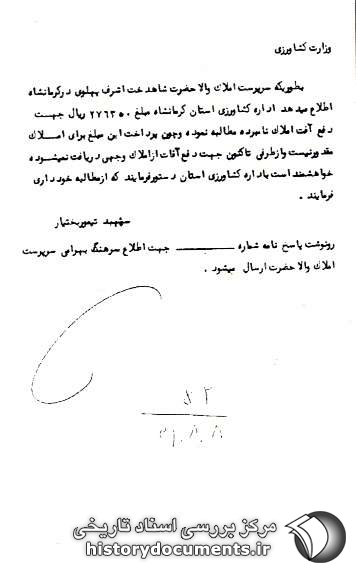 وزارت کشاورزی
بطوریکه سرپرست املاک والا حضرت شاهدخت اشرف پهلوی در کرمانشاه
اطلاع میدهد اداره کشاورزی استان کرمانشاه مبلغ ۲۷۶۳۵۰ ریال جهت
دفع آفت املاک نامبرده مطالبه نموده وچون پرداخت این مبلغ برای املاک
مقدور نیست وازطرفی تاکنون جهت دفع آفات ازاملاک وجهی دریافت نمیشوده
خواهشمند است باداره کشاورزی استان دستورفرمایند که ازمطالبه خودداری
فرمایند .
سپهبد تیموربختیار
رونوشت پاسخ نامه شماره ـــــــ جهت اطلاع سرهنگ بهرامی سرپرست
املاک والا حضرت ارسال میشود .
مرکز بررسی اسناد تاریخی
historydocuments.ir